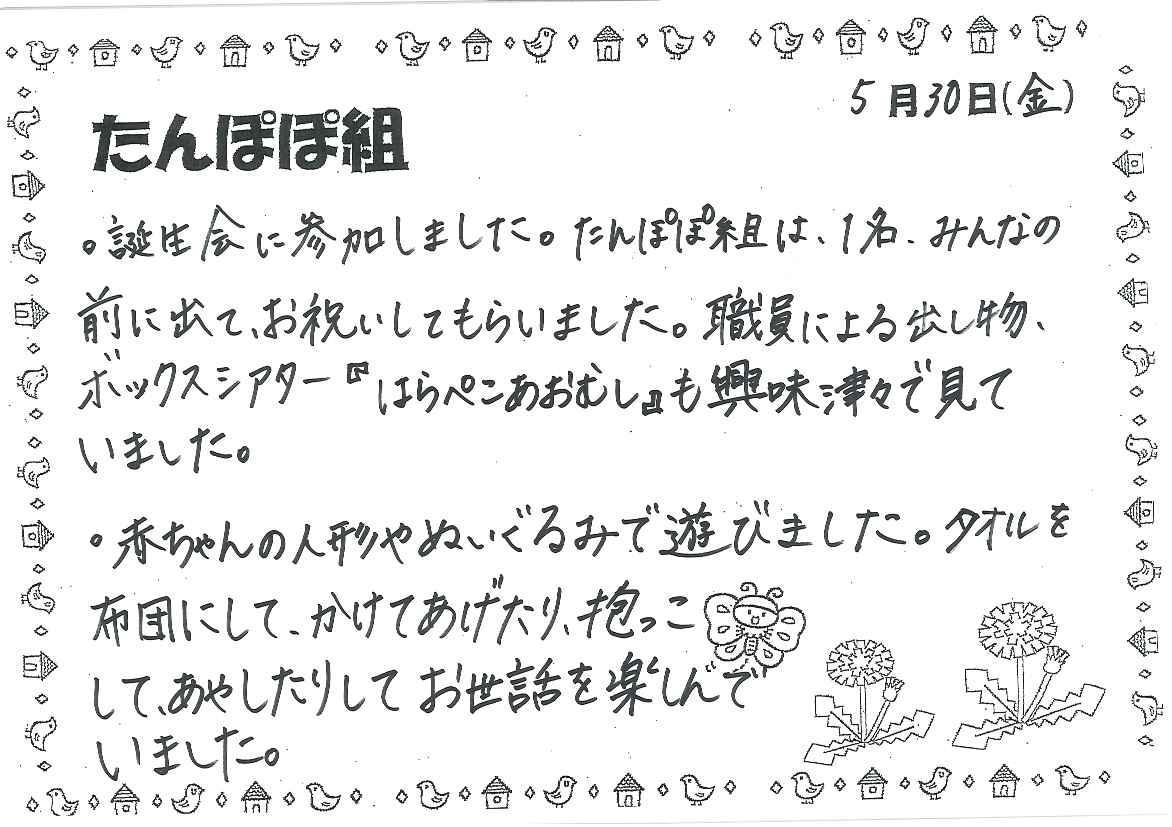 5月30日(金)
たんぽぽ組
。誕生会に参加しました。たんぽぽ組は、1名、みんなの
前に出て、お祝いしてもらいました。職員による出し物、
ボックスシアター『はらぺこあおむし』も興味津々で見て
いました。
。赤ちゃんの人形やぬいぐるみで遊びました。タオルを
布団にして、かけてあげたり、抱っこ
して、あやしたりしてお世話を楽しんで
いました。